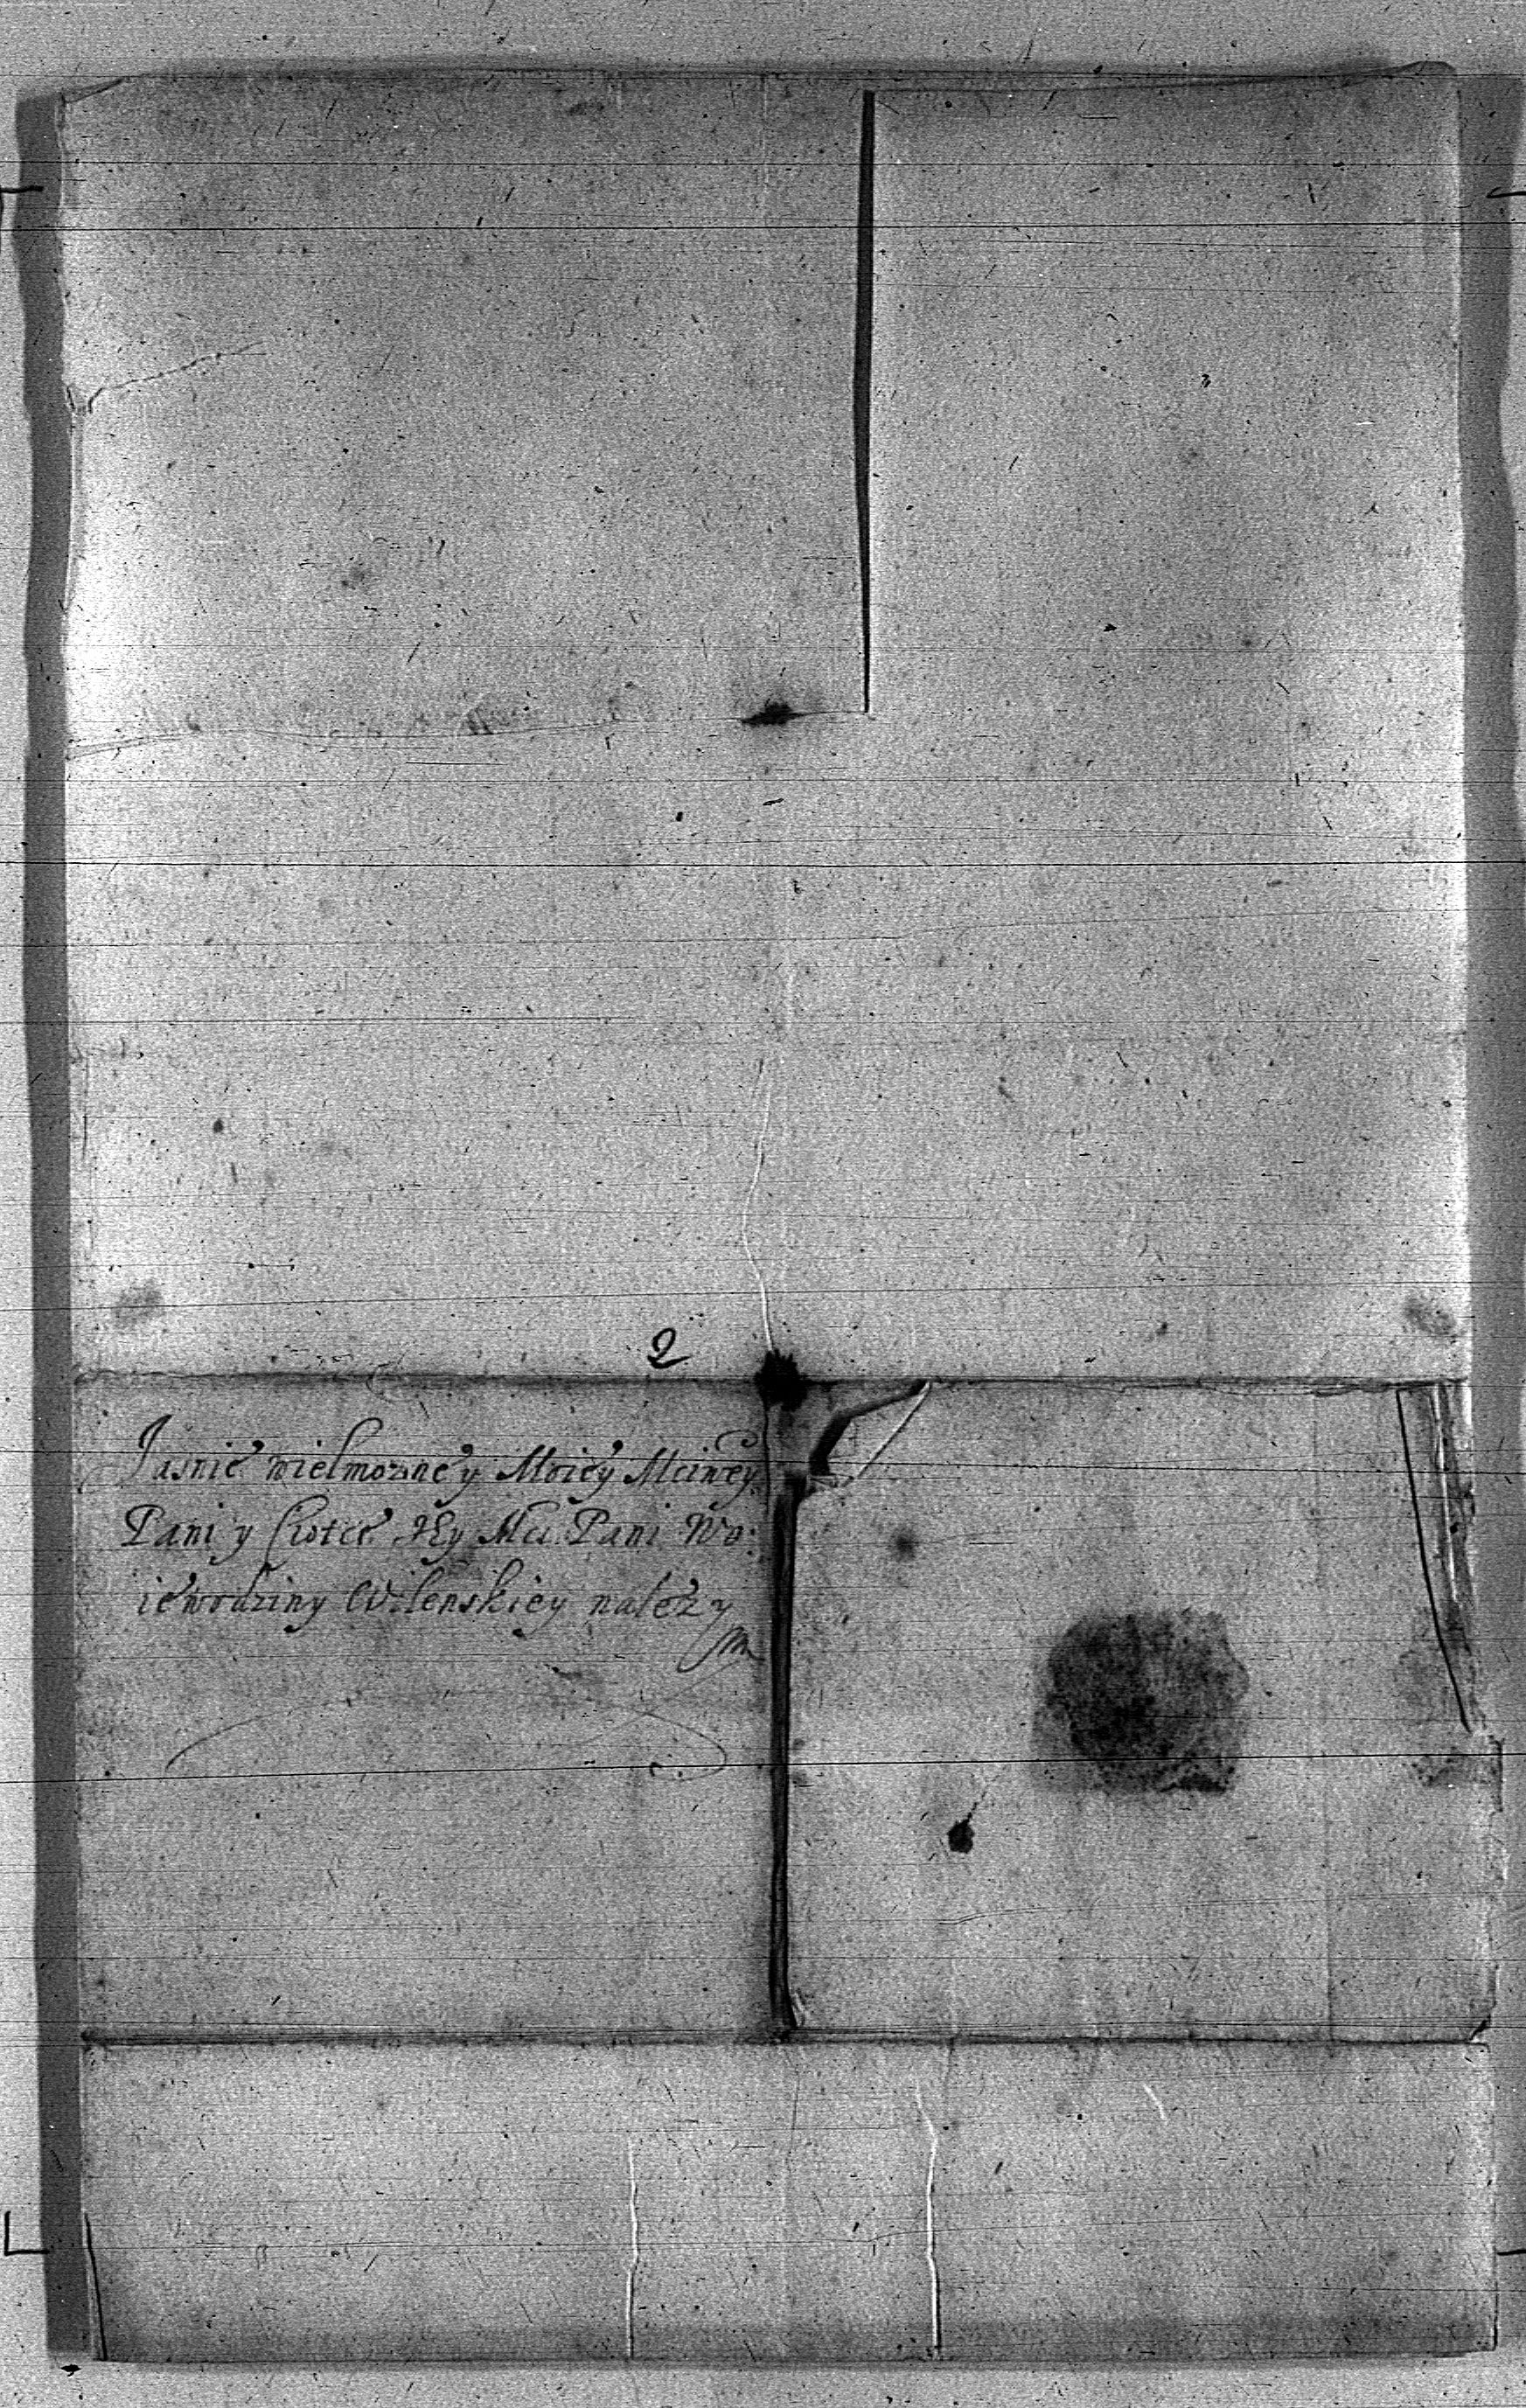 2
Jasnie wielmozney Moiey Mciwey
Pani y Ciotce JEy Mci Pani Wo:
iewodziny Wilenskiey nalezy